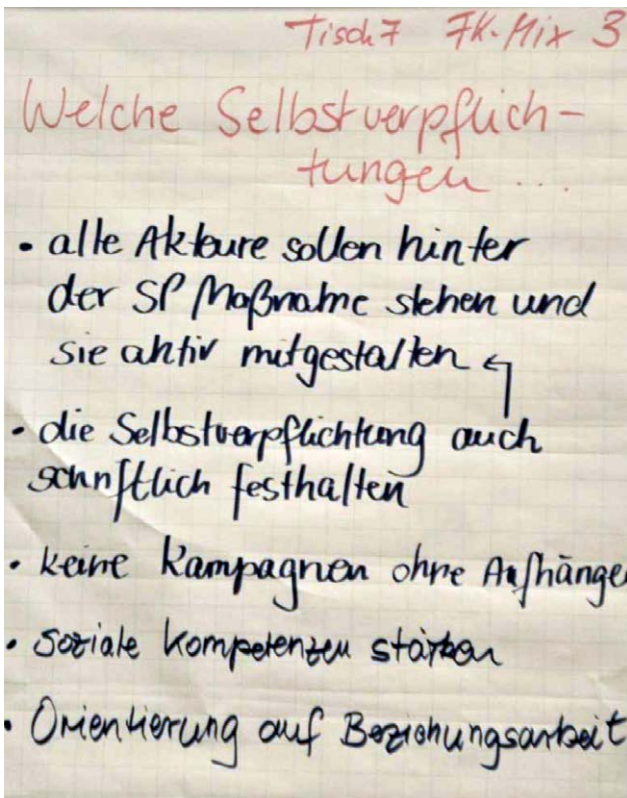 Tisch 7 FK-Mix 3
Welche Selbstverpflich-
tungen...
• alle Akteure sollen hinter
der SP Maßnahme stehen und
sie aktiv mitgestalten
• die Selbstverpflichtung auch
schriftlich festhalten
• keine Kampagnen ohne Aufhänge
• soziale Kompetenzen stärken
• Orientierung auf Beziehungsarbeit